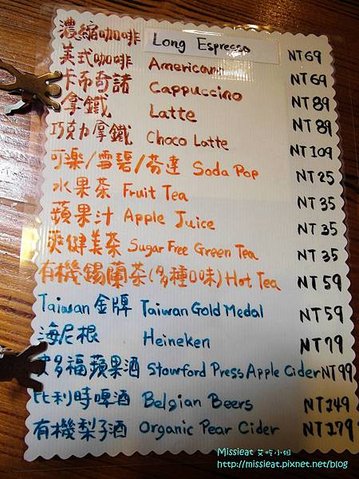 濃縮咖啡 Long Espresso NT69
美式咖啡 Americano NT69
卡布奇諾 Cappuccino NT89
拿鐵 Latte NT89
巧克力拿鐵 Choco Latte NT109
可樂/雪碧/芬達 Soda Pop NT25
水果茶 Fruit Tea NT35
蘋果汁 Apple Juice NT35
爽健美茶 Sugar Free Green Tea NT35
有機錫蘭茶(多種口味) Hot Tea NT59
Taiwan 金牌 Taiwan Gold Medal NT59
海尼根 Heineken NT79
多福蘋果酒 Stowford Press Apple Cider NT99
比利時啤酒 Belgian Beers NT149
有機梨子酒 Organic Pear Cider NT179
Missieat 艾吃小姐
http://missieat.pixnet.net/blog